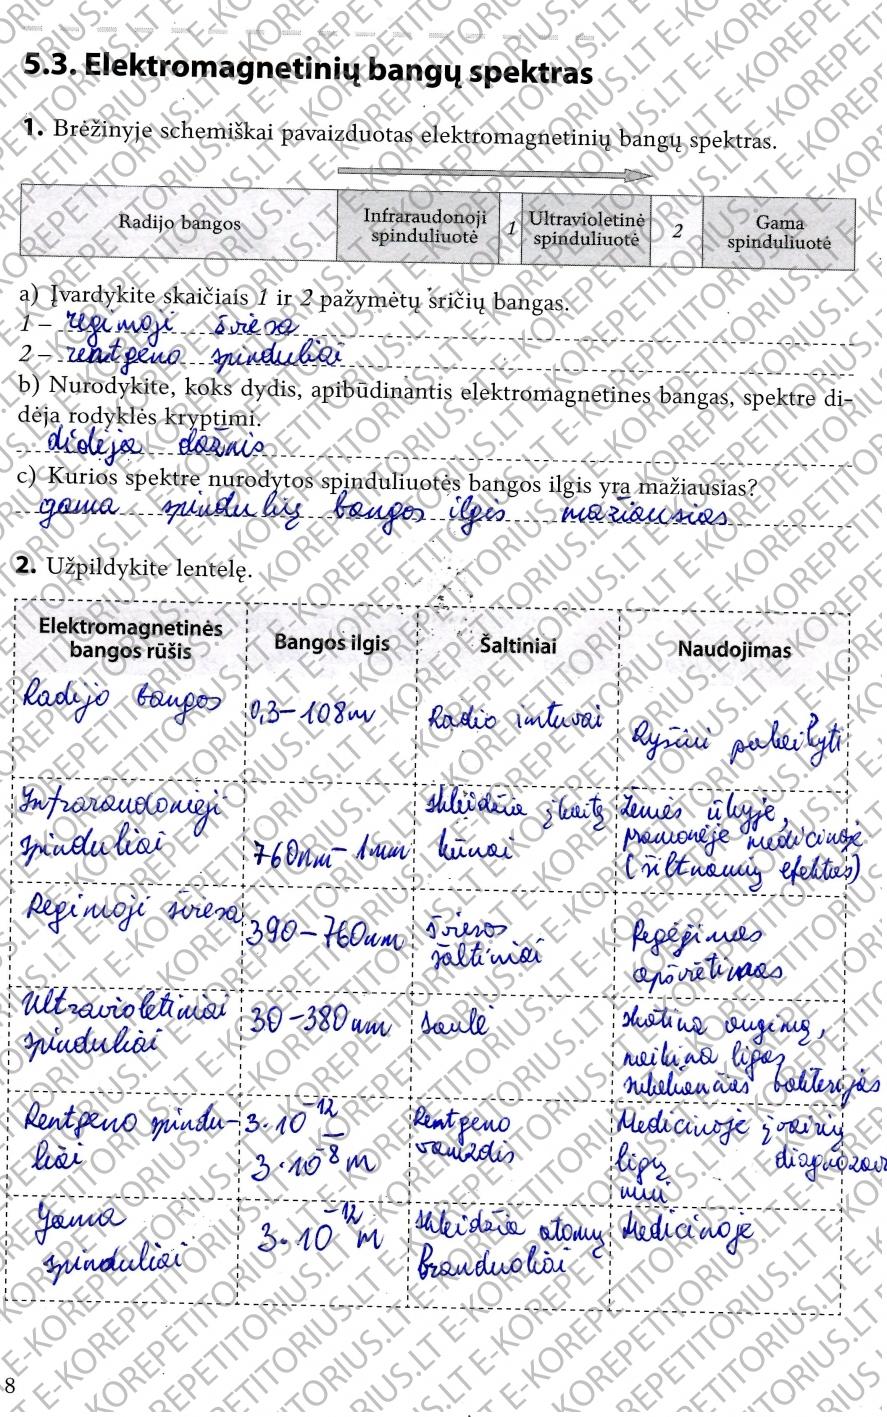 5.3. Elektromagnetinių bangų spektras
1. Brėžinyje schemiškai pavaizduotas elektromagnetinių bangų spektras.
Radijo bangos
Infraraudonoji
spinduliuotė
1
Ultravioletinė
spinduliuotė
2
Gama
spinduliuotė
a) Įvardykite skaičiais 1 ir 2 pažymėtų sričių bangas.
1 – regimoji šviesa
2 – rentgeno spinduliai
b) Nurodykite, koks dydis, apibūdinantis elektromagnetines bangas, spektre di-
dėja rodyklės kryptimi.
didėja dažnis
c) Kurios spektre nurodytos spinduliuotės bangos ilgis yra mažiausias?
gama spindulių bangos ilgis mažiausias
2. Užpildykite lentelę.
Elektromagnetinės
bangos rūšis
Bangos ilgis
Šaltiniai
Naudojimas
Radijo bangos
0,3–108m
Radio imtuvai
Ryšiui palaikyti
Infraraudonieji
spinduliai
760nm – 1mm
skleidžia įkaitę
kūnai
Žemės ūkyje,
pramonėje medicinoje
(šiltnamių efektas)
Regimoji šviesa
390–760nm
šviesos
šaltiniai
Regėjimas
apšvietimas
Ultravioletiniai
spinduliai
30–380nm
saulė
skatina augimą,
naikina ligas
sukeliančias bakterijas
Rentgeno spindu-
liai
3·10⁻¹² –
3·10⁻⁸ m
Rentgeno
vamzdis
Medicinoje įvairių
ligų
Gama
spinduliai
3·10⁻¹² m
skleidžia atomų
branduoliai
Medicinoje
8
E-KOREPETITORIUS.LT